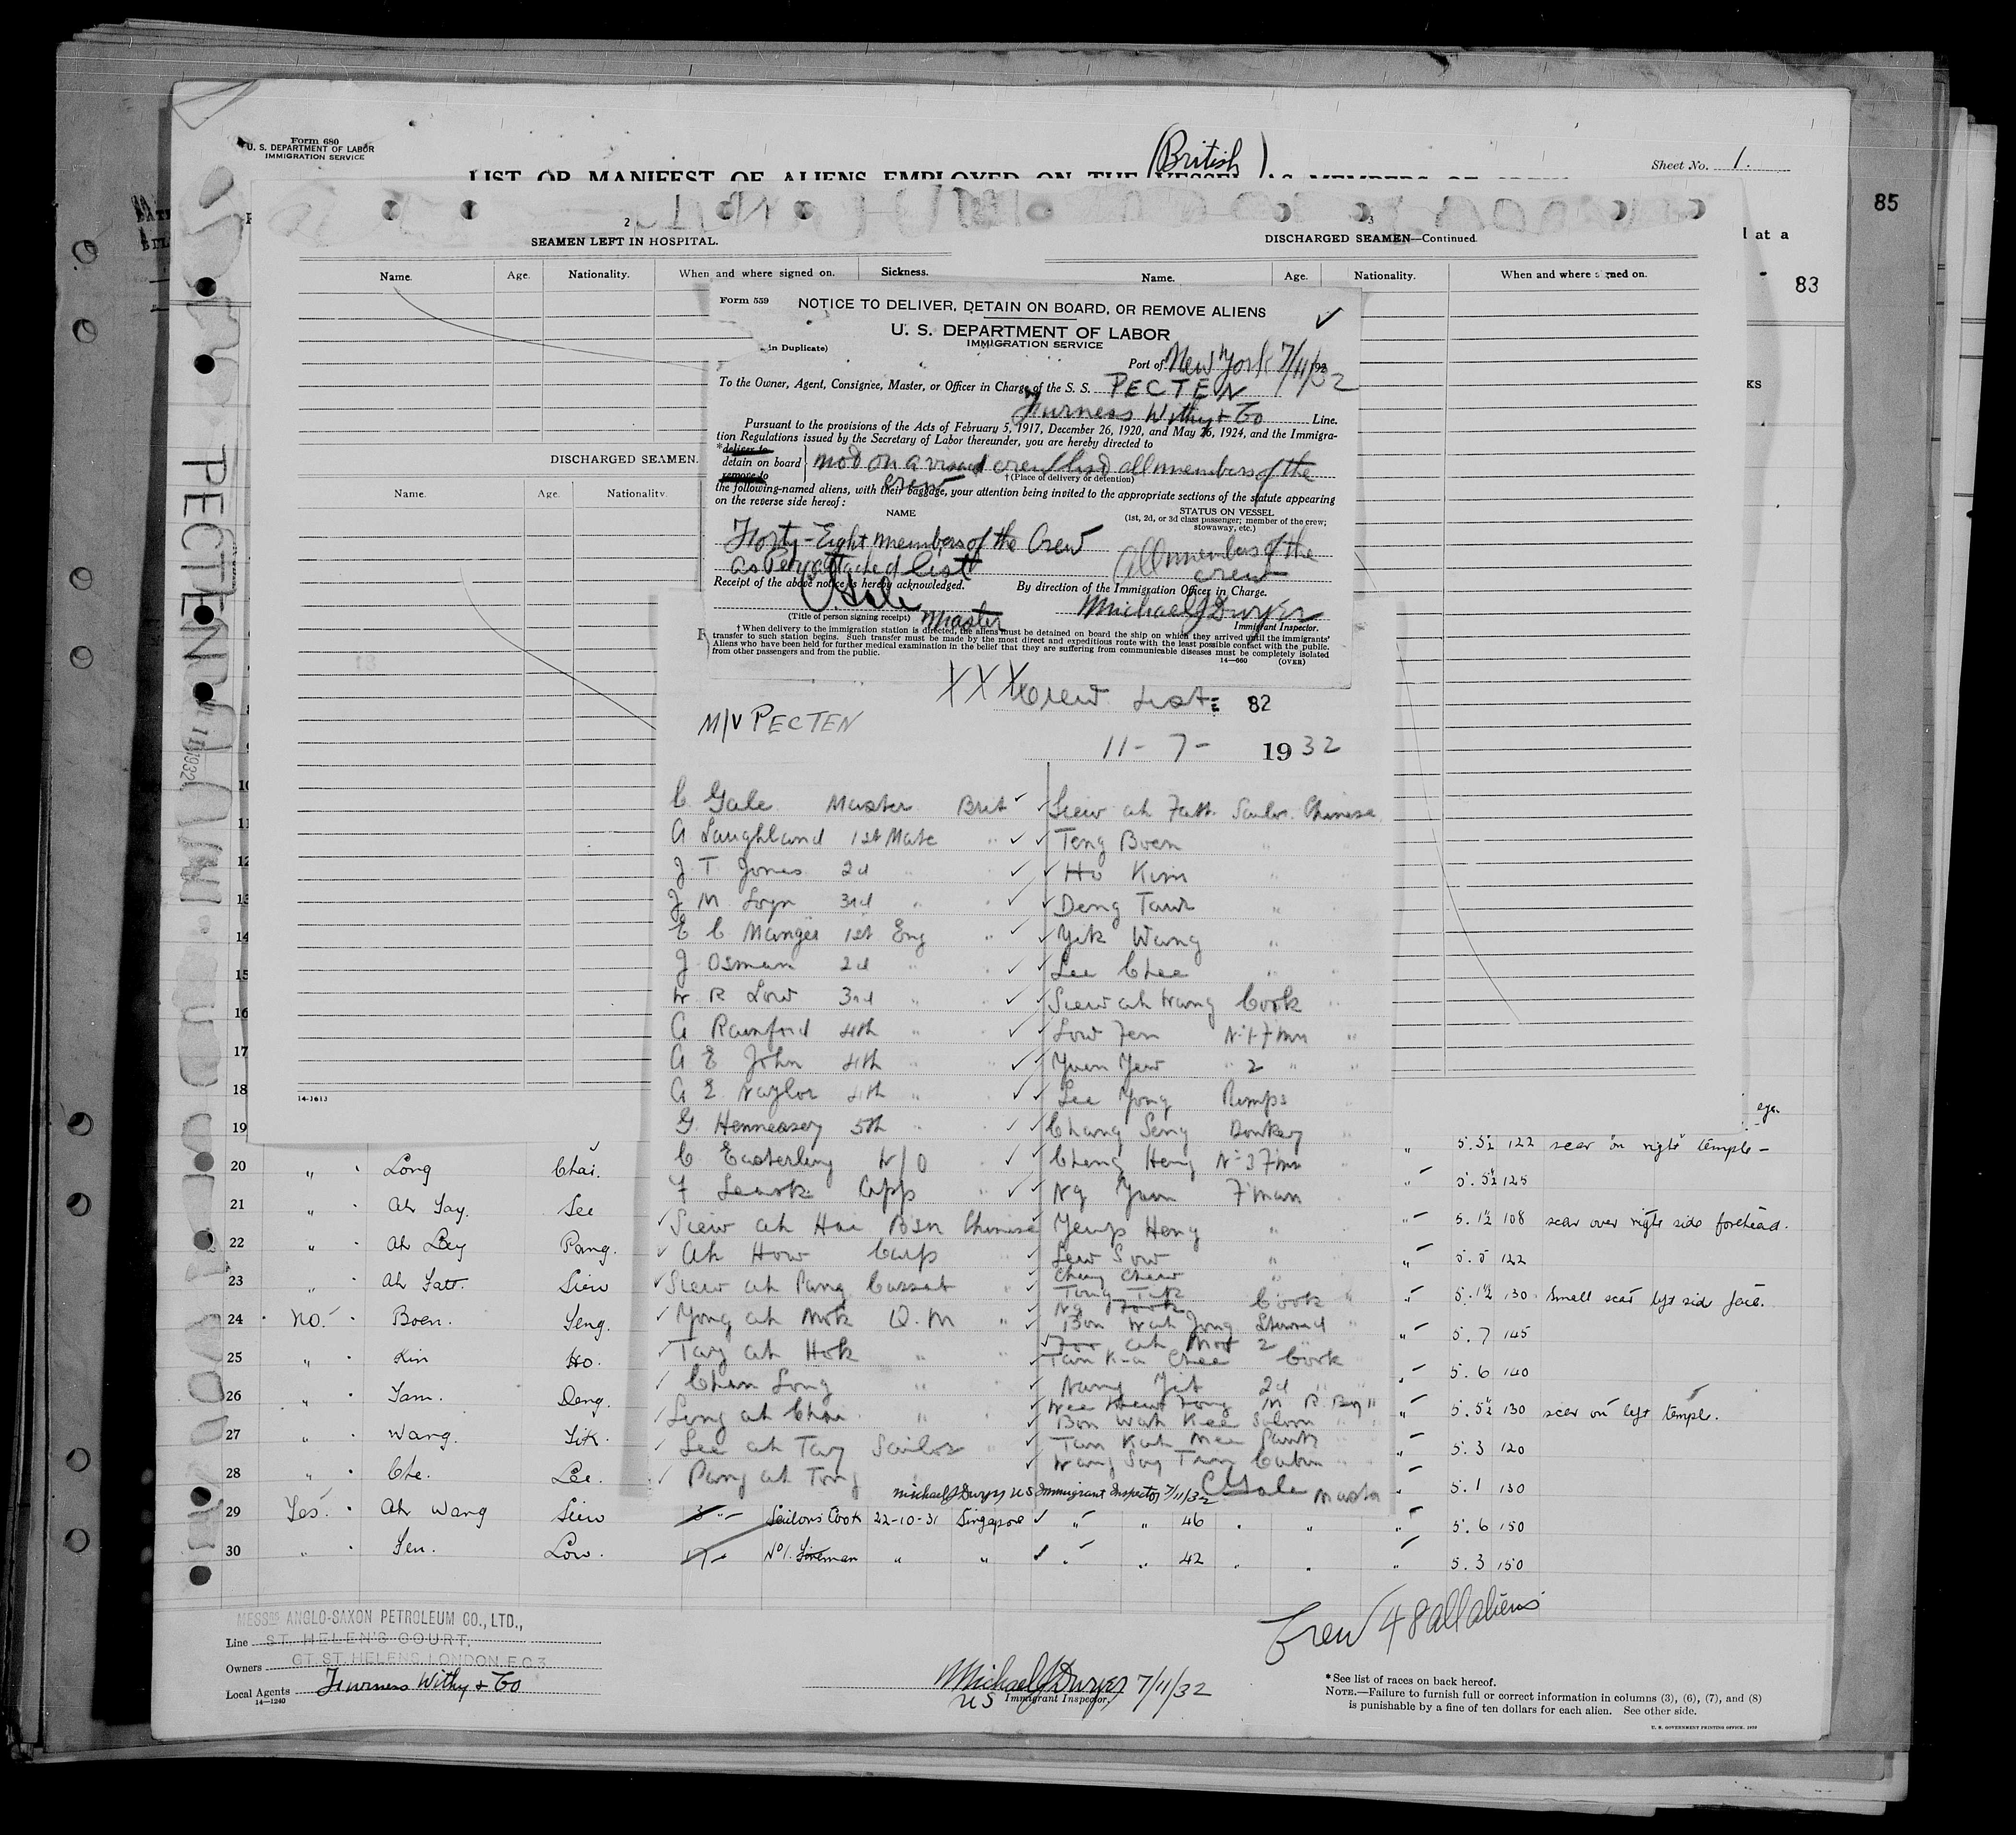 Form 680
U. S. DEPARTMENT OF LABOR
IMMIGRATION SERVICE
(British)
Sheet No. 1.
LIST OR MANIFEST OF ALIENS EMPLOYED ON THE VESSEL AS MEMBERS OF CREW
85
l at a
83
KS
2
SEAMEN LEFT IN HOSPITAL.
3
DISCHARGED SEAMEN—Continued.
Name. Age. Nationality. When and where signed on. Sickness.
Name. Age. Nationality. When and where signed on.
DISCHARGED SEAMEN.
Name. Age. Nationality.
14-1613
Form 559
NOTICE TO DELIVER, DETAIN ON BOARD, OR REMOVE ALIENS
U. S. DEPARTMENT OF LABOR
IMMIGRATION SERVICE
in Duplicate)
Port of New York 7/11/32
To the Owner, Agent, Consignee, Master, or Officer in Charge of the S. S. PECTEN
Furness Withy & Co Line.
Pursuant to the provisions of the Acts of February 5, 1917, December 26, 1920, and May 26, 1924, and the Immigra-
tion Regulations issued by the Secretary of Labor thereunder, you are hereby directed to
*deliver to
detain on board
remove to
not on a visaed crew list all members of the
crew
† (Place of delivery or detention)
the following-named aliens, with their baggage, your attention being invited to the appropriate sections of the statute appearing
on the reverse side hereof:
NAME
STATUS ON VESSEL
(1st, 2d, or 3d class passenger; member of the crew;
stowaway, etc.)
Forty-Eight members of the Crew
as Per attached list
all members of the
crew
Receipt of the above notice is hereby acknowledged.
By direction of the Immigration Officer in Charge.
C. Gale
Master
(Title of person signing receipt)
Michael J Dwyer
Immigrant Inspector.
† When delivery to the immigration station is directed, the aliens must be detained on board the ship on which they arrived until the immigrants'
transfer to such station begins. Such transfer must be made by the most direct and expeditious route with the least possible contact with the public.
Aliens who have been held for further medical examination in the belief that they are suffering from communicable diseases must be completely isolated
from other passengers and from the public.
14—660 (OVER)
XXX Crew List 82
M/V PECTEN
11 - 7 - 1932
C Gale Master Brit
A Laughland 1st Mate "
J T Jones 2d " "
J M Logn 3rd " "
E C Manger 1st Eng "
J Osman 2d " "
W R Low 3rd " "
A Rainford 4th " "
A E John 4th " "
A E Naylor 4th " "
G. Hennessey 5th " "
C Easterling W/O "
F Leask App "
Siew ah Hai Bsn Chinese
Ah How Carp "
Siew ah Pang Cassat "
Yong ah Mok Q.M "
Tay ah Hok " "
Chan Long " "
Long ah Chai " "
Lee ah Tay Sailor "
Pang ah Tong
Siew ah Fatt. Sailor. Chinese
Teng Boen "
Ho Kim "
Deng Tam "
Yik Wang "
Lee Chee "
Siew ah Wang Cook "
Low Fen No 1 F'mn "
Yuen Yew " 2 "
Lee Yong Pumps
Chang Seng Donkey
Cheng Heng No 3 F'mn
Ng Yuen F'man
Yeup Heng "
Lew Sow "
Cheng Chew "
Tong Tek
Ng Cook "
Bon Wah Jong Steward "
ah Moi 2 "
Tan Kia Chee Cook
Nang Jit 2d "
Wee Khew Fong M R Boy "
Bon Wah Kee Saloon
Tan Kah Mee Pantr
Wang Say Tan Cabin
Michael J Dwyer US Immigrant Inspector 7/11/32
C Gale Master
PECTEN
10
11
12
13
14
15
16
17
18
19
eye.
5. 5½ 122 scar on right temple -
20 " Long Chai. 5. 5½ 125
21 " Ah Tay. Lee 5. 1½ 108 scar over right side forehead.
22 " Ah Pang. 5. 5 122
23 " Ah Fatt Siew 5. 1½ 130 Small scar left side face.
24 No. Boen. Teng. 5. 7 145
25 " Kim Ho. 5. 6 140
26 " Tam. Deng. 5. 5½ 130 scar on left temple.
27 " Wang. Yik. 5. 3 120
28 " Che. Lee. 5. 1 130
29 Yes. Ah Wang Siew 3 " Sailors Cook 22-10-31 Singapore " " 46 " " 5. 6 150
30 " Fen. Low. 17 No 1. Fireman " " " " 42 " " 5. 3 150
MESSRS ANGLO-SAXON PETROLEUM CO., LTD.,
Line ST. HELEN'S COURT,
Owners GT. ST. HELENS, LONDON. E.C.3
Local Agents Furness Withy & Co
14—1240
Michael J Dwyer 7/11/32
US Immigrant Inspector.
Crew 48 all aliens
* See list of races on back hereof.
NOTE.—Failure to furnish full or correct information in columns (3), (6), (7), and (8)
is punishable by a fine of ten dollars for each alien. See other side.
U. S. GOVERNMENT PRINTING OFFICE: 1930